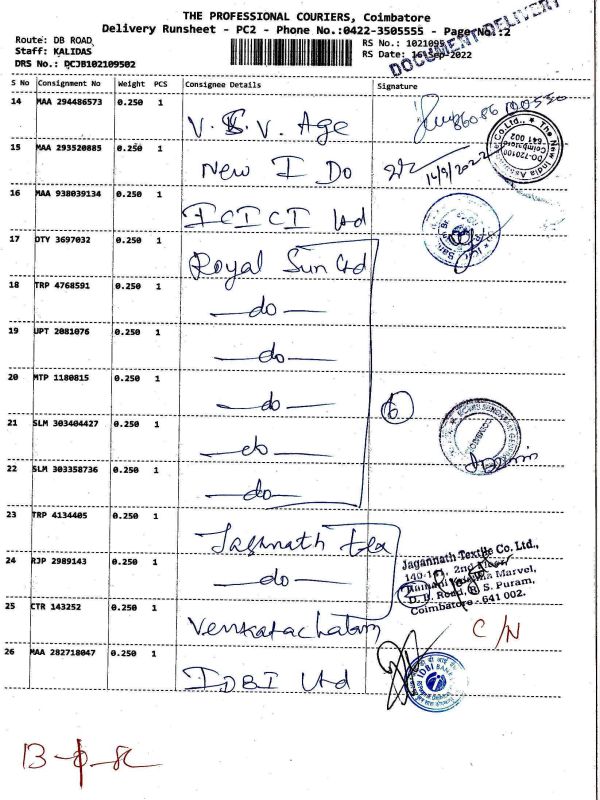 THE PROFESSIONAL COURIERS, Coimbatore
Delivery Runsheet - PC2 - Phone No.:0422-3505555 - Page No.:2
DOCUMENT DELIVERY
Route: DB ROAD
Staff: KALIDAS
DRS No.: DCJB102109502
RS No.: 1021095
RS Date: 16-Sep-2022
S No Consignment No Weight PCS Consignee Details Signature
14 MAA 294486573 0.250 1 V. S. V. Age
15 MAA 293520885 0.250 1 New I Do 14/9/2022
The New India Assurance Co.Ltd., DO-720100 Coimbatore 641 002
16 MAA 938039134 0.250 1 ICICI Ltd
17 OTY 3697032 0.250 1 Royal Sun Ltd
18 TRP 4768591 0.250 1 —do—
19 UPT 2081076 0.250 1 —do—
20 MTP 1180815 0.250 1 —do— 6
21 SLM 303404427 0.250 1 —do—
22 SLM 303358736 0.250 1 —do—
23 TRP 4134405 0.250 1 Jagannath Tex
Jagannath Textile Co. Ltd.,
140-141, 2nd Floor
Marvel,
D. B. Road, R. S. Puram,
Coimbatore - 641 002.
24 RJP 2989143 0.250 1 —do— 2
25 CTR 143252 0.250 1 Venkatachalam C/N
26 MAA 282718047 0.250 1 IDBI Ltd
IDBI BANK